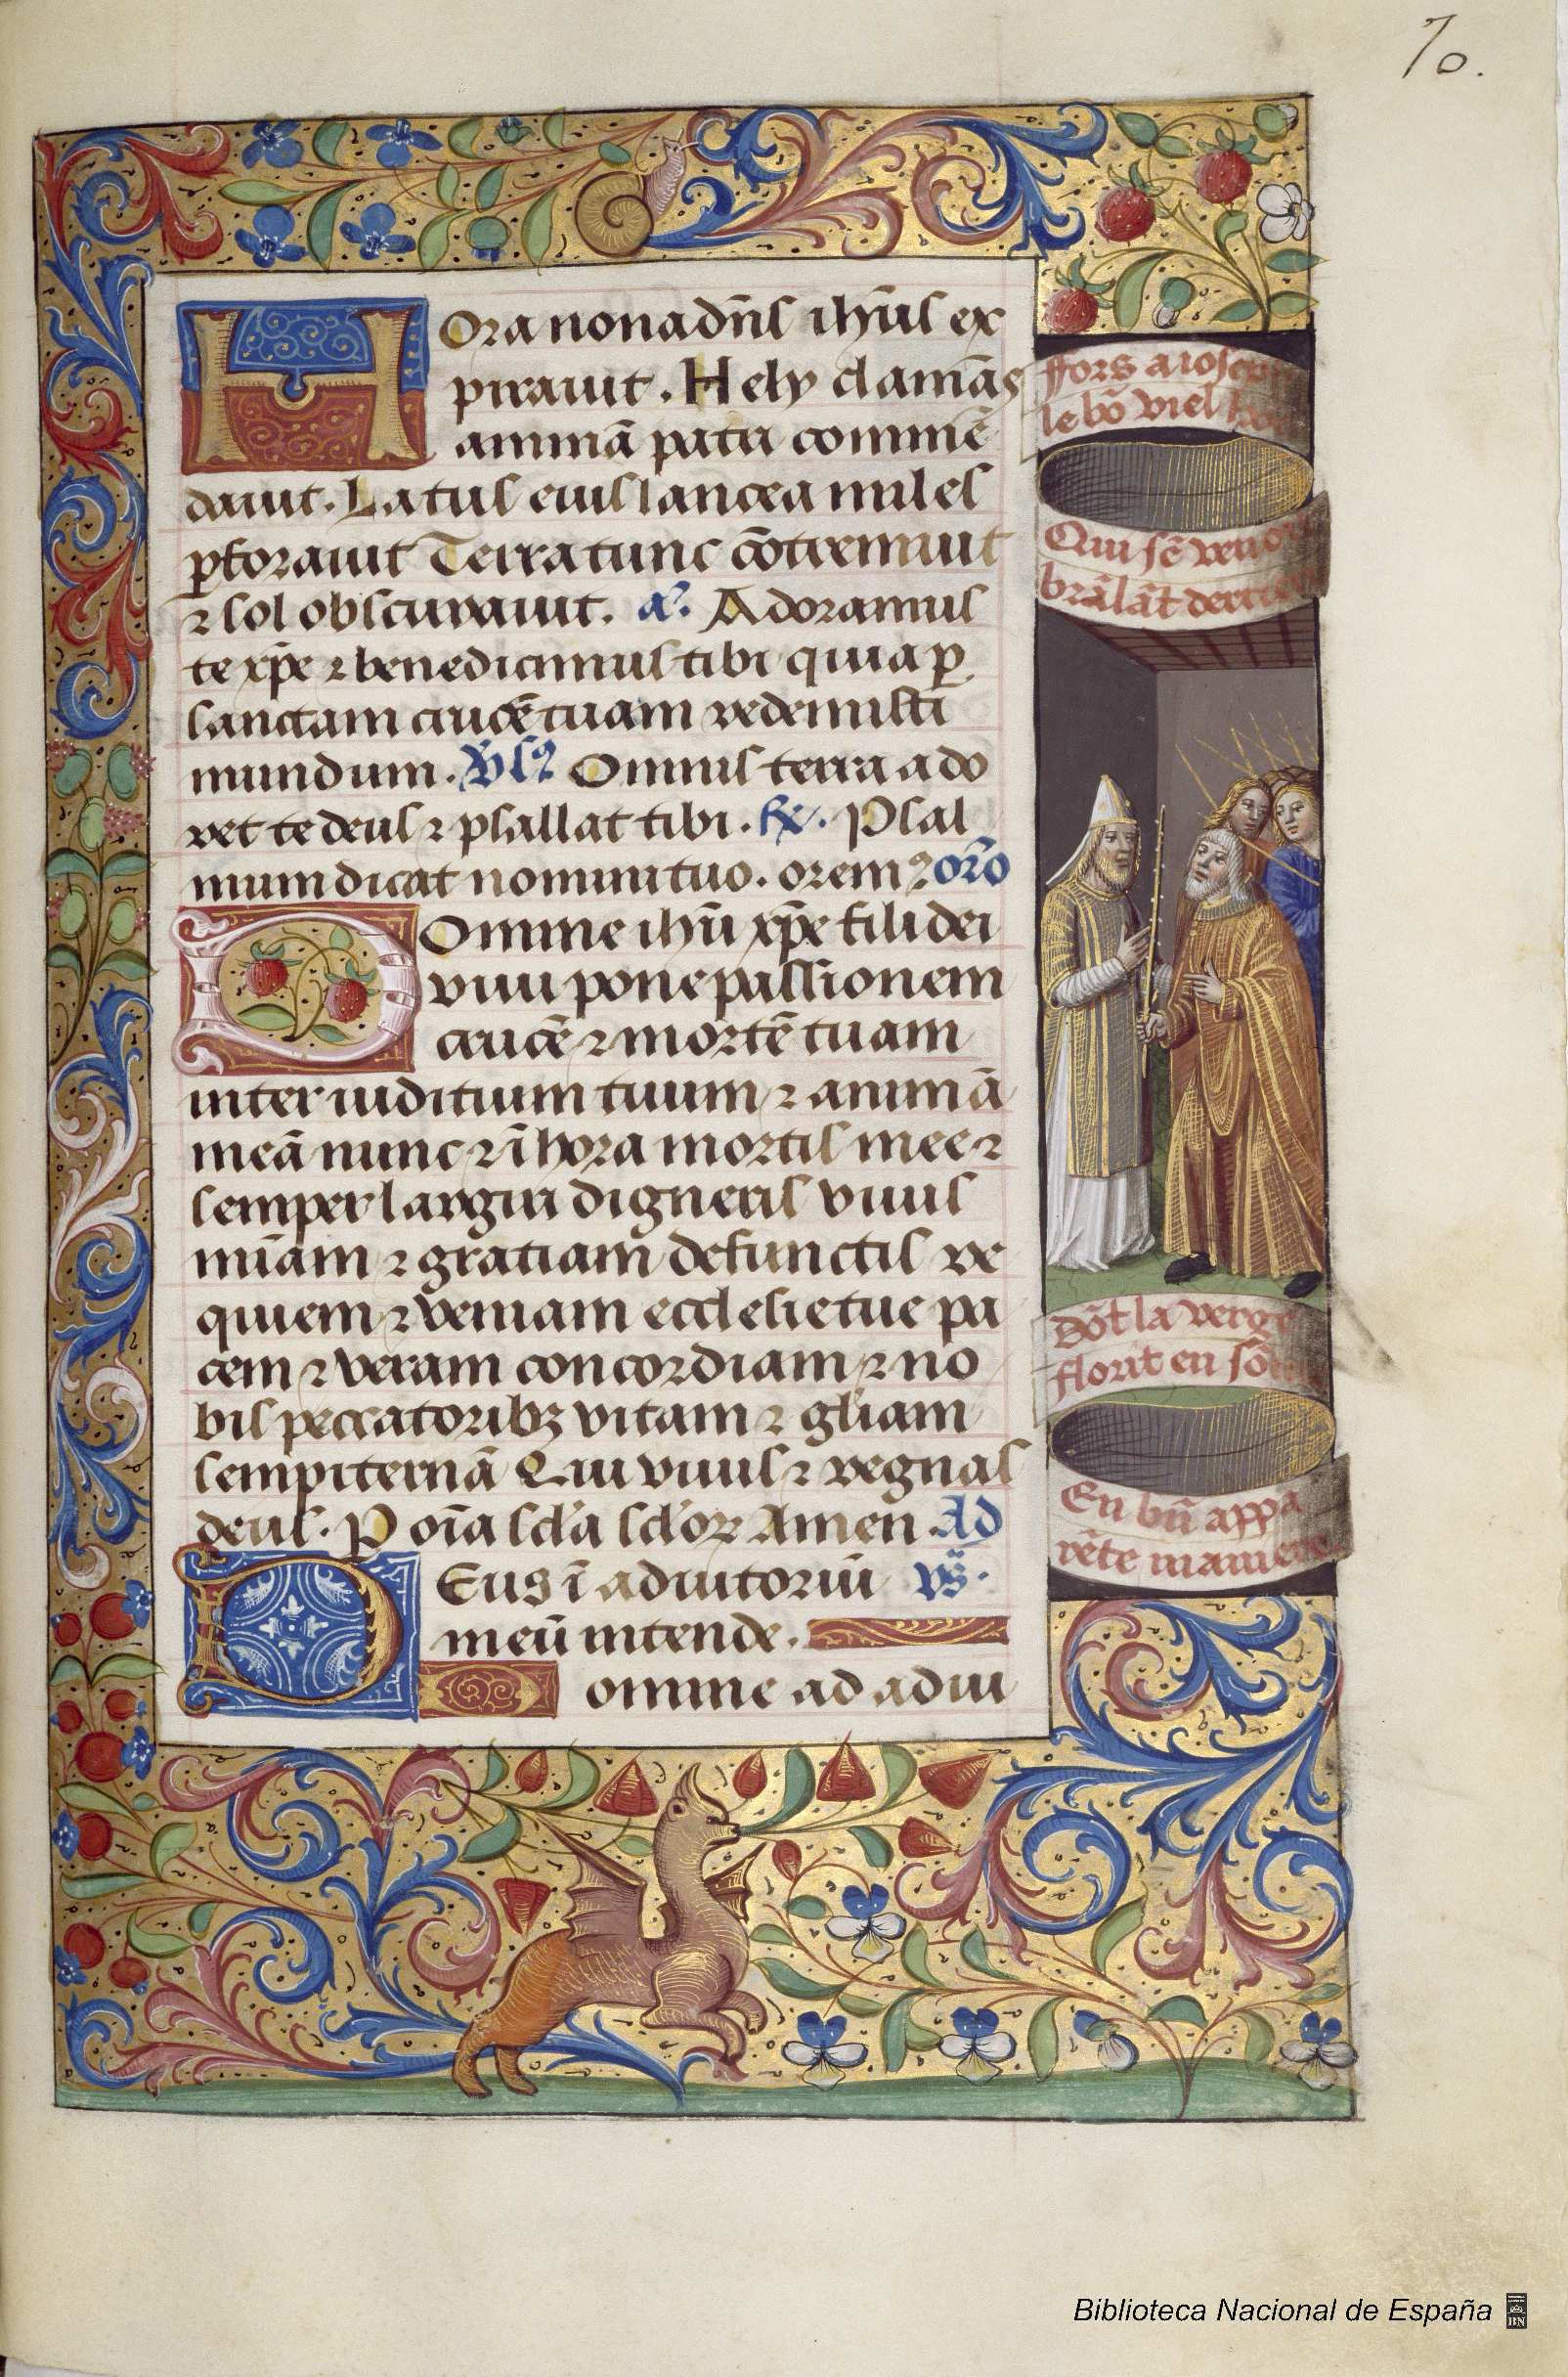 70.
Hora nona dñs ihũs ex
pirauit. Hely clamãs
animã patri commẽ
dauit. Latus eius lancea miles
ꝑforauit Terra tunc cõtremuit
⁊ sol obscurauit. añ. Adoramus
te xp̃e ⁊ benedicimus tibi quia ꝑ
sanctam crucẽ tuam redemisti
mundum. v̾sꝰ Omnis terra ado
ret te deus ⁊ psallat tibi. Rx. Psal
mum dicat nomini tuo. oremꝰ or̃o
Domine ihũ xp̃e fili dei
viui pone passionem
crucẽ ⁊ mortẽ tuam
inter iuditium tuum ⁊ animã
meã nunc ⁊ ĩ hora mortis mee ⁊
semper largiri digneris viuis
miãm ⁊ gratiam defunctis re
quiem ⁊ veniam ecclesie tue pa
cem ⁊ veram concordiam ⁊ no
bis peccatoribꝫ vitam ⁊ gl̃iam
sempiternã Qui viuis ⁊ regnas
deus. P oĩa scl̃a scl̃oꝝ Amen Ad
Deus ĩ adiutoriũ v̾s.
meũ intende.
omine ad adiu
ffors a iosep
le bõ viel
Qui sẽ
brãlãt
Dõt la verge
florit en sõ
En bñ appa
rẽte maniere
Biblioteca Nacional de España
BN